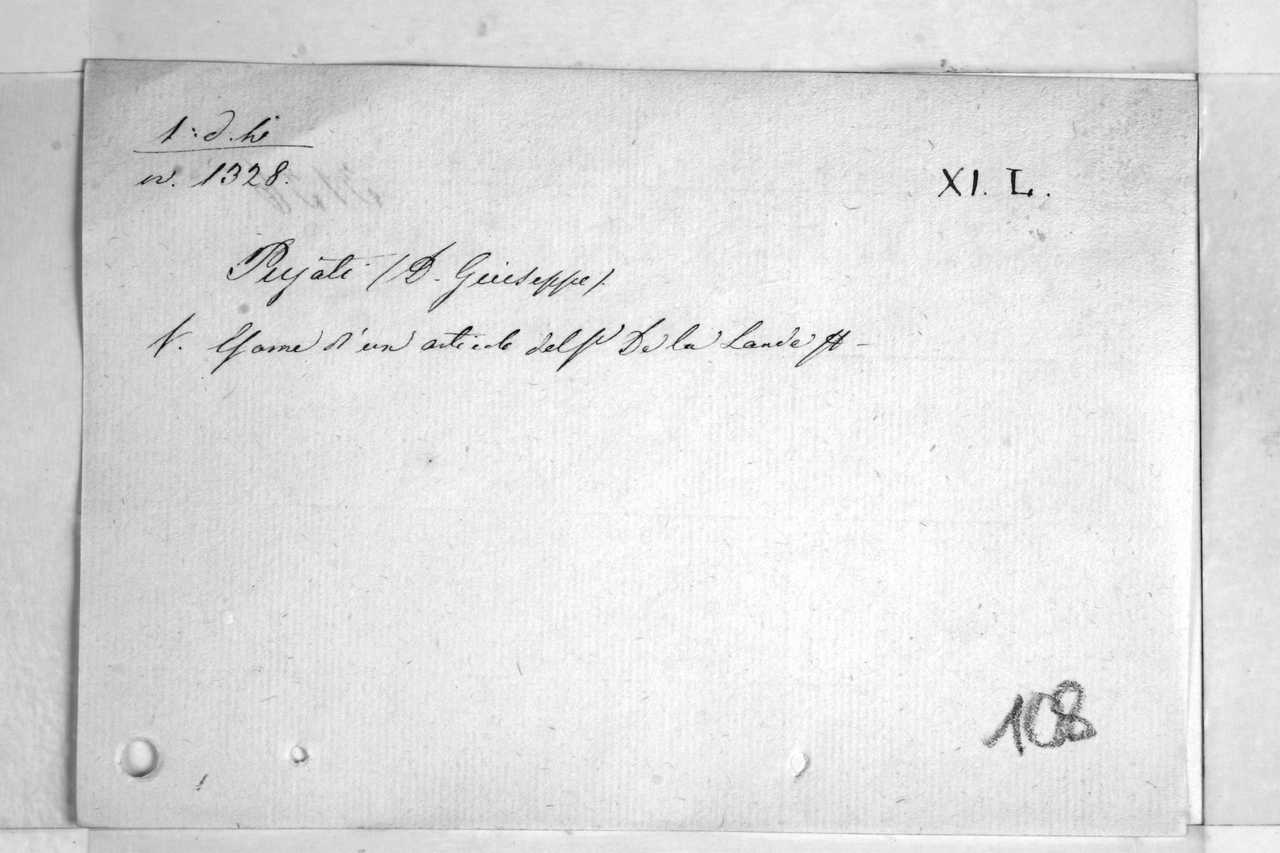 1:d.hi
nr. 1328.
XI. L.
Pujati (D. Giuseppe).
V. Esame d'un articolo del Sr De la Lande &-
108